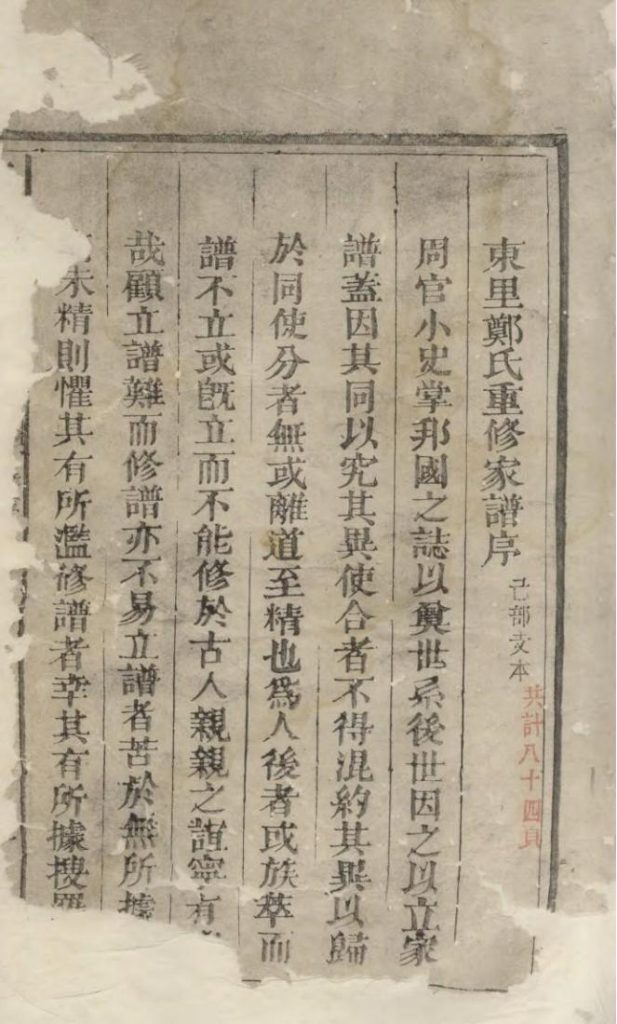 東里鄭氏重修家譜序
己部支本
共計八十四頁
周官小史掌邦國之誌以奠世系後世因之以立家
譜蓋因其同以究其異使合者不得混約其異以歸
於同使分者無或離道至精也爲人後者或族萃而
譜不立或旣立而不能修於古人親親之誼寧有
哉顧立譜難而修譜亦不易立譜者苦於無所據
未精則懼其有所濫修譜者幸其有所據搜羅